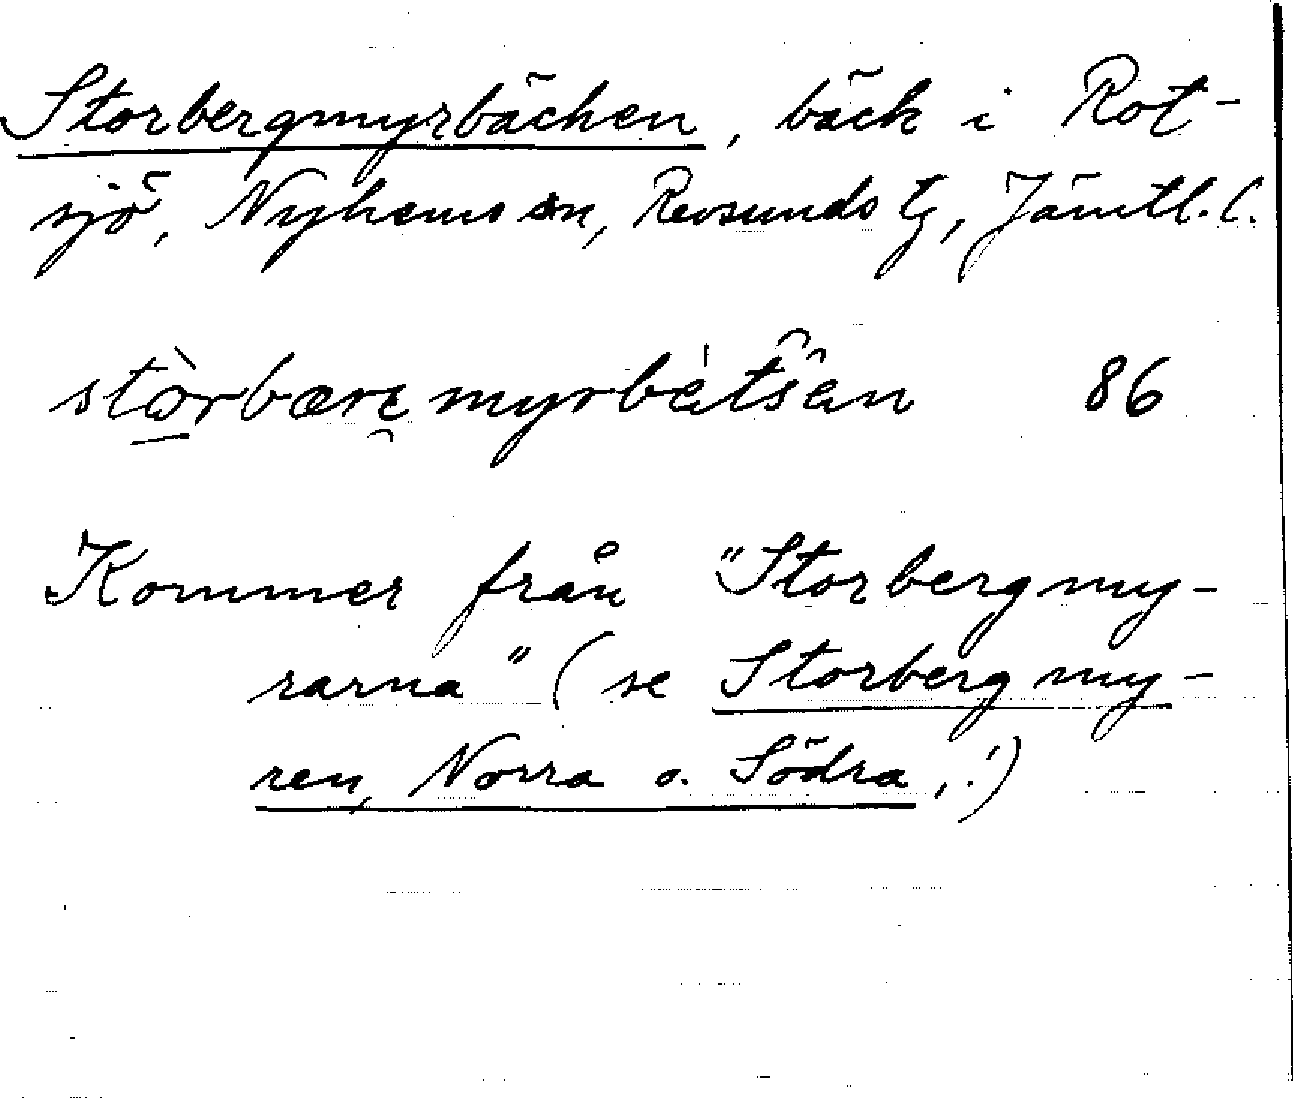 Storbergmyrbäcken, bäck i Rot-
sjö, Nyhems sn, Revsunds tg, Jämtl. l.
stòrbære myrbétšen 86
Kommer från "Storbergmy-
rarna" (se Storbergmy-
ren, Norra o. Södra,!)